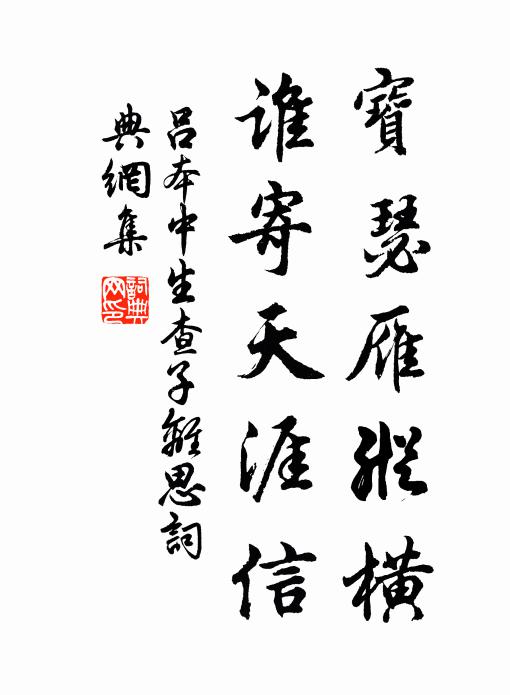 寶瑟雁縱橫
誰寄天涯信
呂本中生查子離思詞
典網集
詞典網印